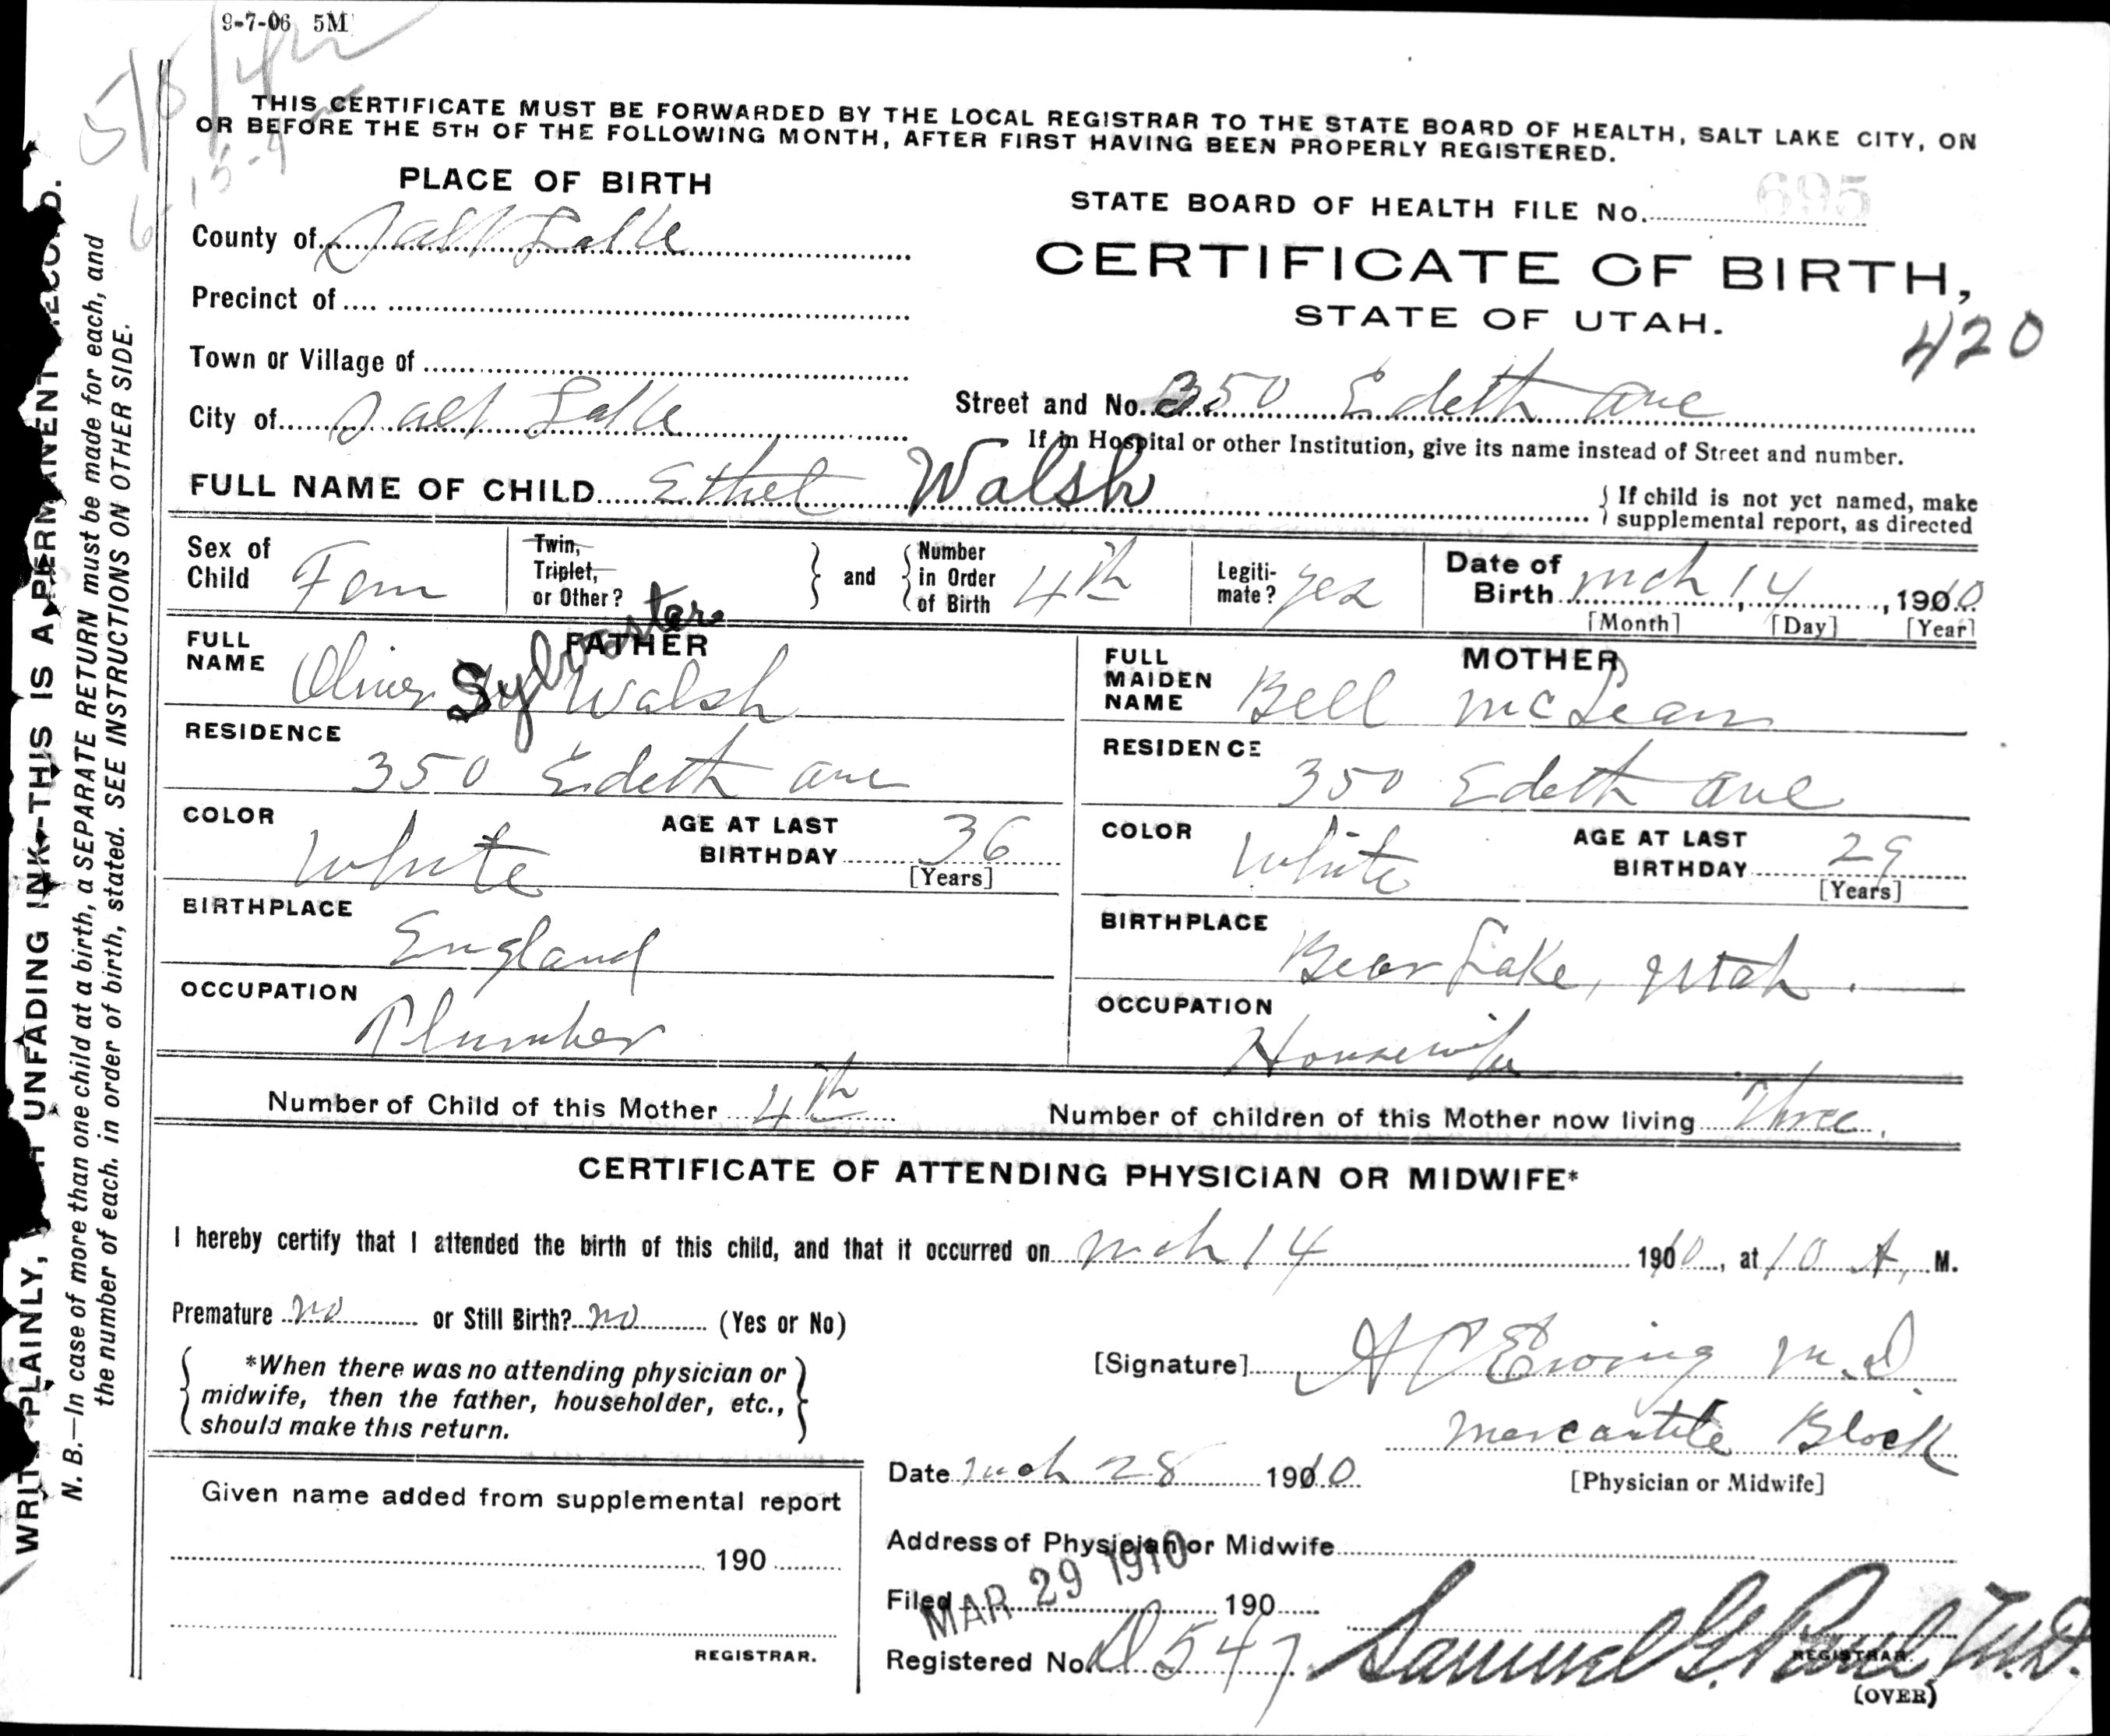 9-7-06 5M
THIS CERTIFICATE MUST BE FORWARDED BY THE LOCAL REGISTRAR TO THE STATE BOARD OF HEALTH, SALT LAKE CITY, ON
OR BEFORE THE 5TH OF THE FOLLOWING MONTH, AFTER FIRST HAVING BEEN PROPERLY REGISTERED.
PLACE OF BIRTH
STATE BOARD OF HEALTH FILE No. 695
County of Salt Lake
CERTIFICATE OF BIRTH,
Precinct of
STATE OF UTAH.
420
Town or Village of
City of Salt Lake
Street and No. 350 Edeth ave
If in Hospital or other Institution, give its name instead of Street and number.
FULL NAME OF CHILD Ethel Walsh
If child is not yet named, make
supplemental report, as directed
Sex of Child Fem
Twin, Triplet, or Other?
and
Number in Order of Birth 4th
Legiti-mate? yes
Date of Birth mch 14, 1910
[Month] [Day] [Year]
FATHER
FULL NAME Oliver Sylvester Walsh
MOTHER
FULL MAIDEN NAME Bell McLean
RESIDENCE 350 Edeth ave
RESIDENCE 350 Edeth ave
COLOR White
AGE AT LAST BIRTHDAY 36
[Years]
COLOR White
AGE AT LAST BIRTHDAY 29
[Years]
BIRTHPLACE England
BIRTHPLACE Bear Lake, Utah.
OCCUPATION Plumber
OCCUPATION Housewife
Number of Child of this Mother 4th
Number of children of this Mother now living Three.
CERTIFICATE OF ATTENDING PHYSICIAN OR MIDWIFE*
I hereby certify that I attended the birth of this child, and that it occurred on mch 14 1910, at 10 A. M.
Premature no or Still Birth? no (Yes or No)
*When there was no attending physician or
midwife, then the father, householder, etc.,
should make this return.
[Signature] A C Ewing M.D.
Mercantile Block
[Physician or Midwife]
Date Mch 28 1910
Given name added from supplemental report
190
REGISTRAR.
Address of Physician or Midwife
Filed MAR 29 1910 190
Registered No. D 547 Samuel G. Paul M.D.
REGISTRAR.
(OVER)
WRITE PLAINLY, UNFADING INK-THIS IS A PERMANENT RECORD.
N. B.—In case of more than one child at a birth, a SEPARATE RETURN must be made for each, and
the number of each, in order of birth, stated. SEE INSTRUCTIONS ON OTHER SIDE.